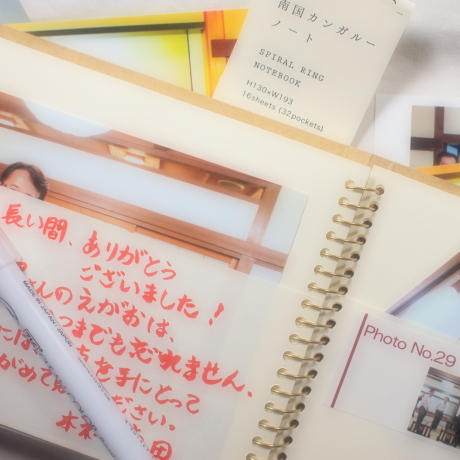 南国カンガルー
ノート
SPIRAL RING
NOTEBOOK
H130×W193
16sheets (32pockets)
長い間、ありがとう
ございました！
んのえがおは、
つまでも忘れません。
には
を手にとって
がめて
ださい。
Photo No.29